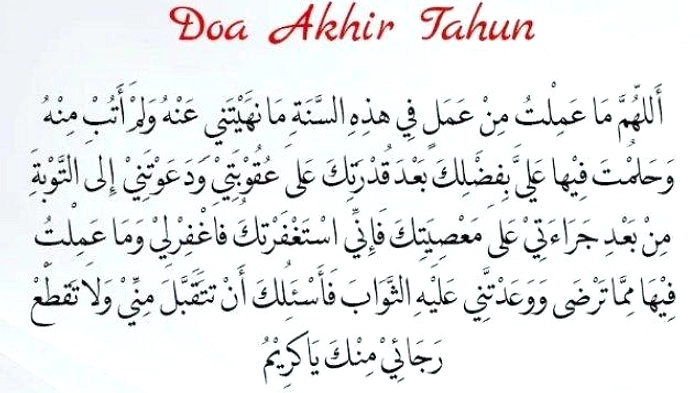 Doa Akhir Tahun
أَللّٰهُمَّ مَا عَمِلْتُ مِنْ عَمَلٍ فِي هَذِهِ السَّنَةِ مَا نَهَيْتَنِي عَنْهُ وَلَمْ أَتُبْ مِنْهُ
وَحَلُمْتَ فِيْها عَلَيَّ بِفَضْلِكَ بَعْدَ قُدْرَتِكَ عَلَى عُقُوْبَتِيْ وَدَعَوْتَنِيْ إِلَى التَّوْبَةِ
مِنْ بَعْدِ جَرَاءَتِيْ عَلَى مَعْصِيَتِكَ فَإِنِّي اسْتَغْفَرْتُكَ فَاغْفِرْلِيْ وَمَا عَمِلْتُ
فِيْهَا مِمَّا تَرْضَى وَوَعَدْتَّنِي عَلَيْهِ الثَّوَابَ فَأَسْئَلُكَ أَنْ تَتَقَبَّلَ مِنِّيْ وَلَا تَقْطَعْ
رَجَائِيْ مِنْكَ يَا كَرِيْمُ